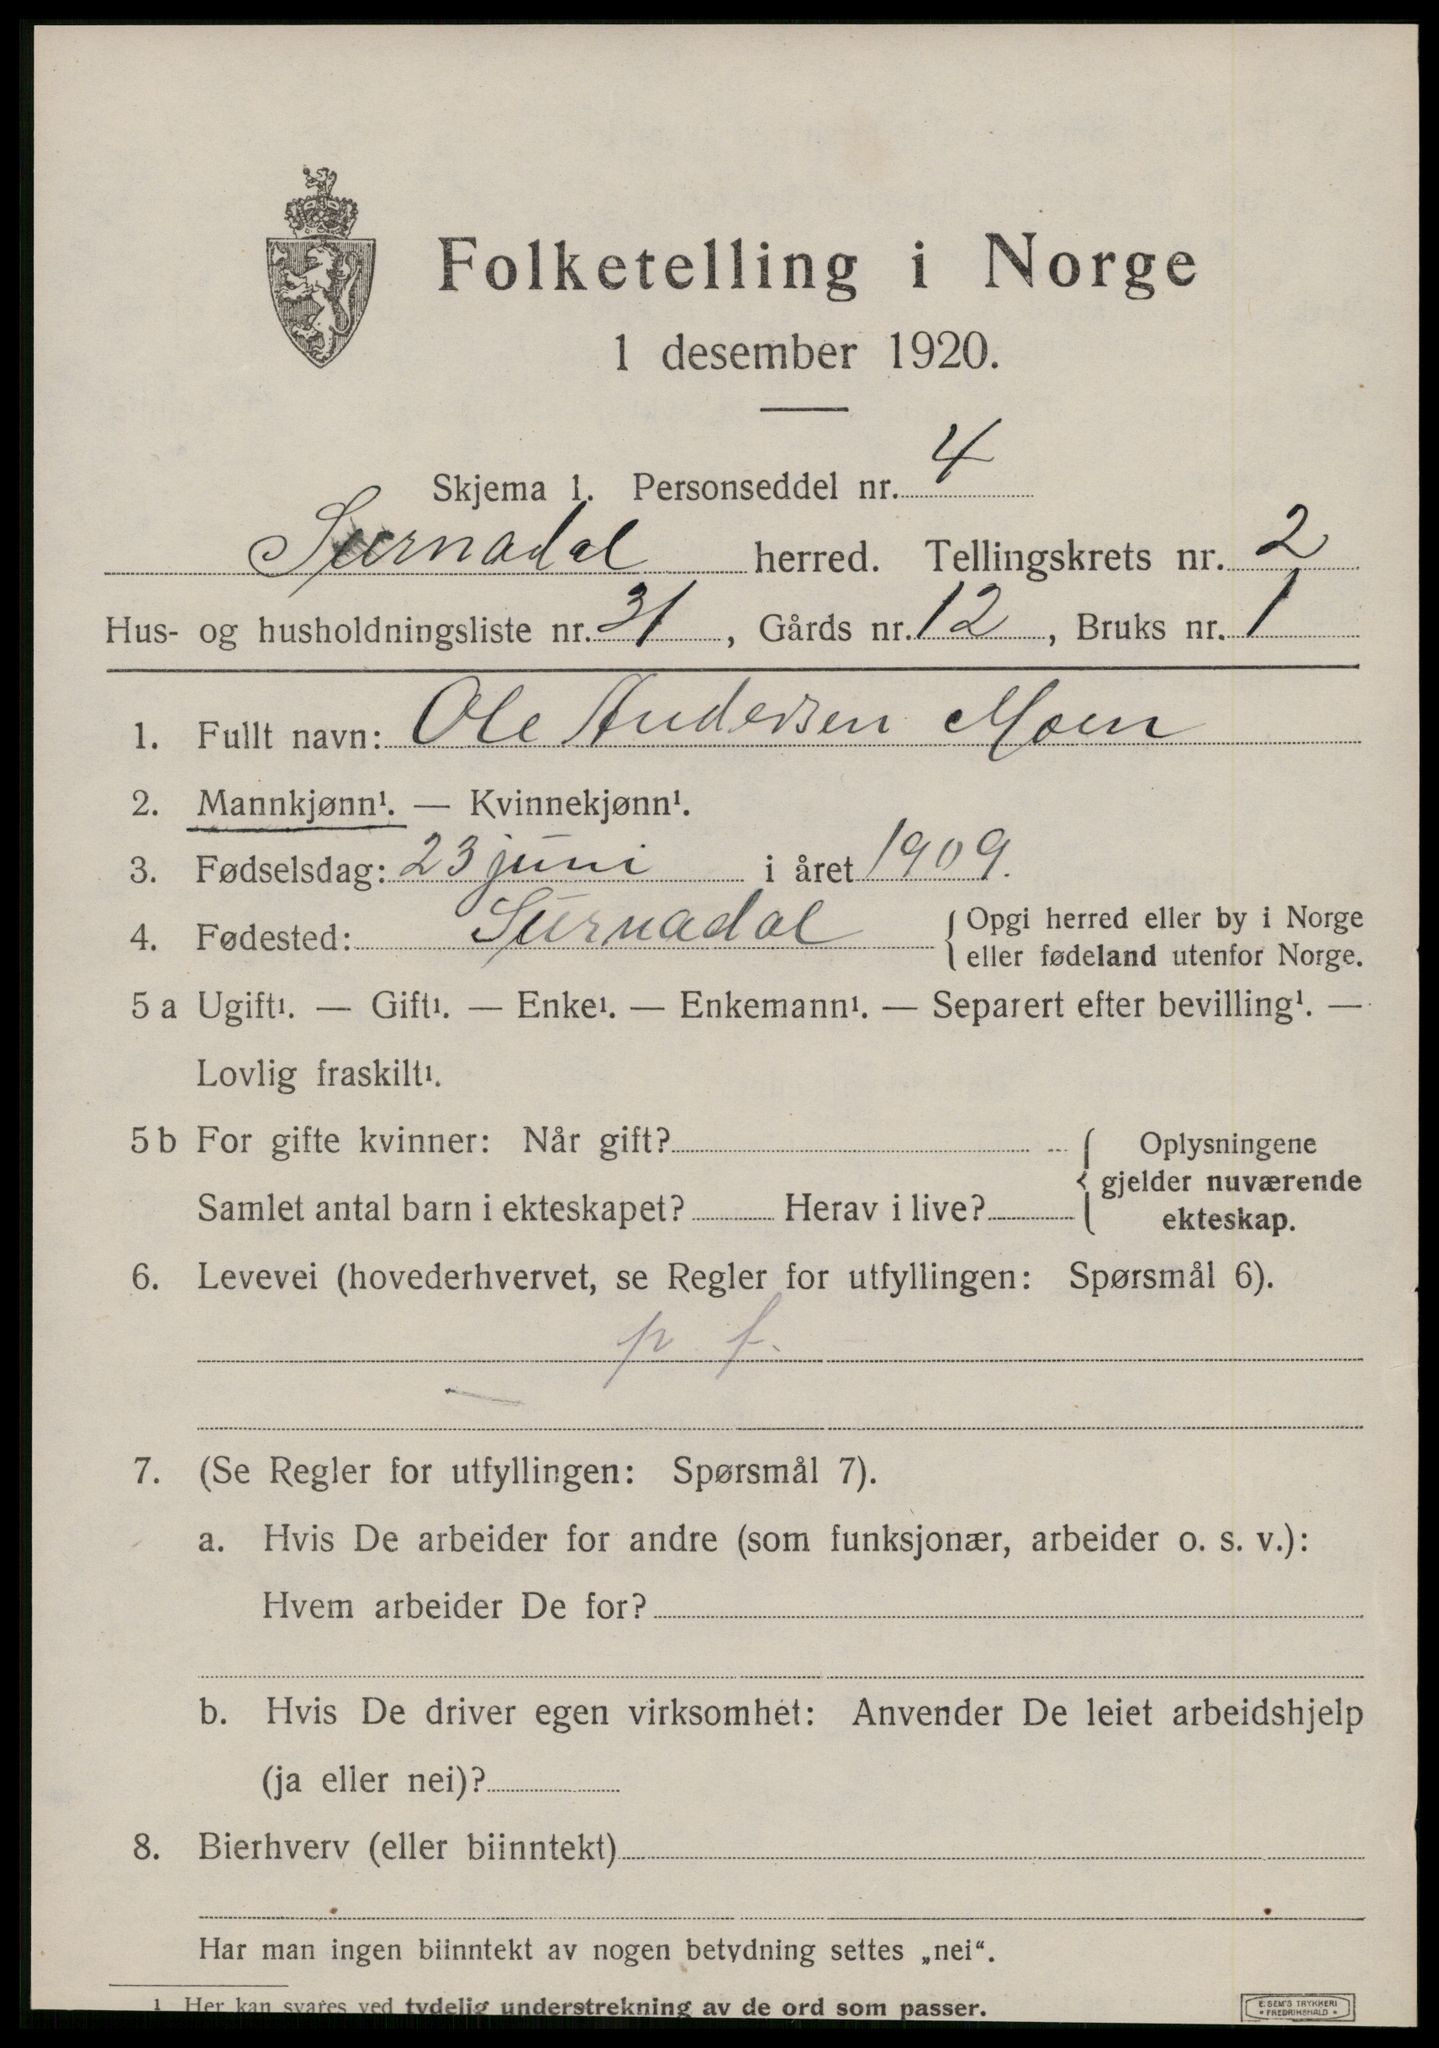 Folketelling i Norge
1 desember 1920.
Skjema 1. Personseddel nr. 4
Surnadal herred. Tellingskrets nr. 2
Hus- og husholdningsliste nr. 31, Gårds nr. 12, Bruks nr. 1
1. Fullt navn: Ole Andersen Moen
2. Mannkjønn¹. — Kvinnekjønn¹.
3. Fødselsdag: 23 juni i året 1909.
4. Fødested: Surnadal { Opgi herred eller by i Norge
eller fødeland utenfor Norge.
5 a Ugift¹. — Gift¹. — Enke¹. — Enkemann¹. — Separert efter bevilling¹. —
Lovlig fraskilt¹.
5 b For gifte kvinner: Når gift? { Oplysningene
gjelder nuværende
Samlet antal barn i ekteskapet? Herav i live? ekteskap.
6. Levevei (hovederhvervet, se Regler for utfyllingen: Spørsmål 6).
p f.
7. (Se Regler for utfyllingen: Spørsmål 7).
a. Hvis De arbeider for andre (som funksjonær, arbeider o. s. v.):
Hvem arbeider De for?
b. Hvis De driver egen virksomhet: Anvender De leiet arbeidshjelp
(ja eller nei)?
8. Bierhverv (eller biinntekt)
Har man ingen biinntekt av nogen betydning settes „nei“.
¹ Her kan svares ved tydelig understrekning av de ord som passer.
E. SEM'S TRYKKERI
* FREDRIKSHALD *